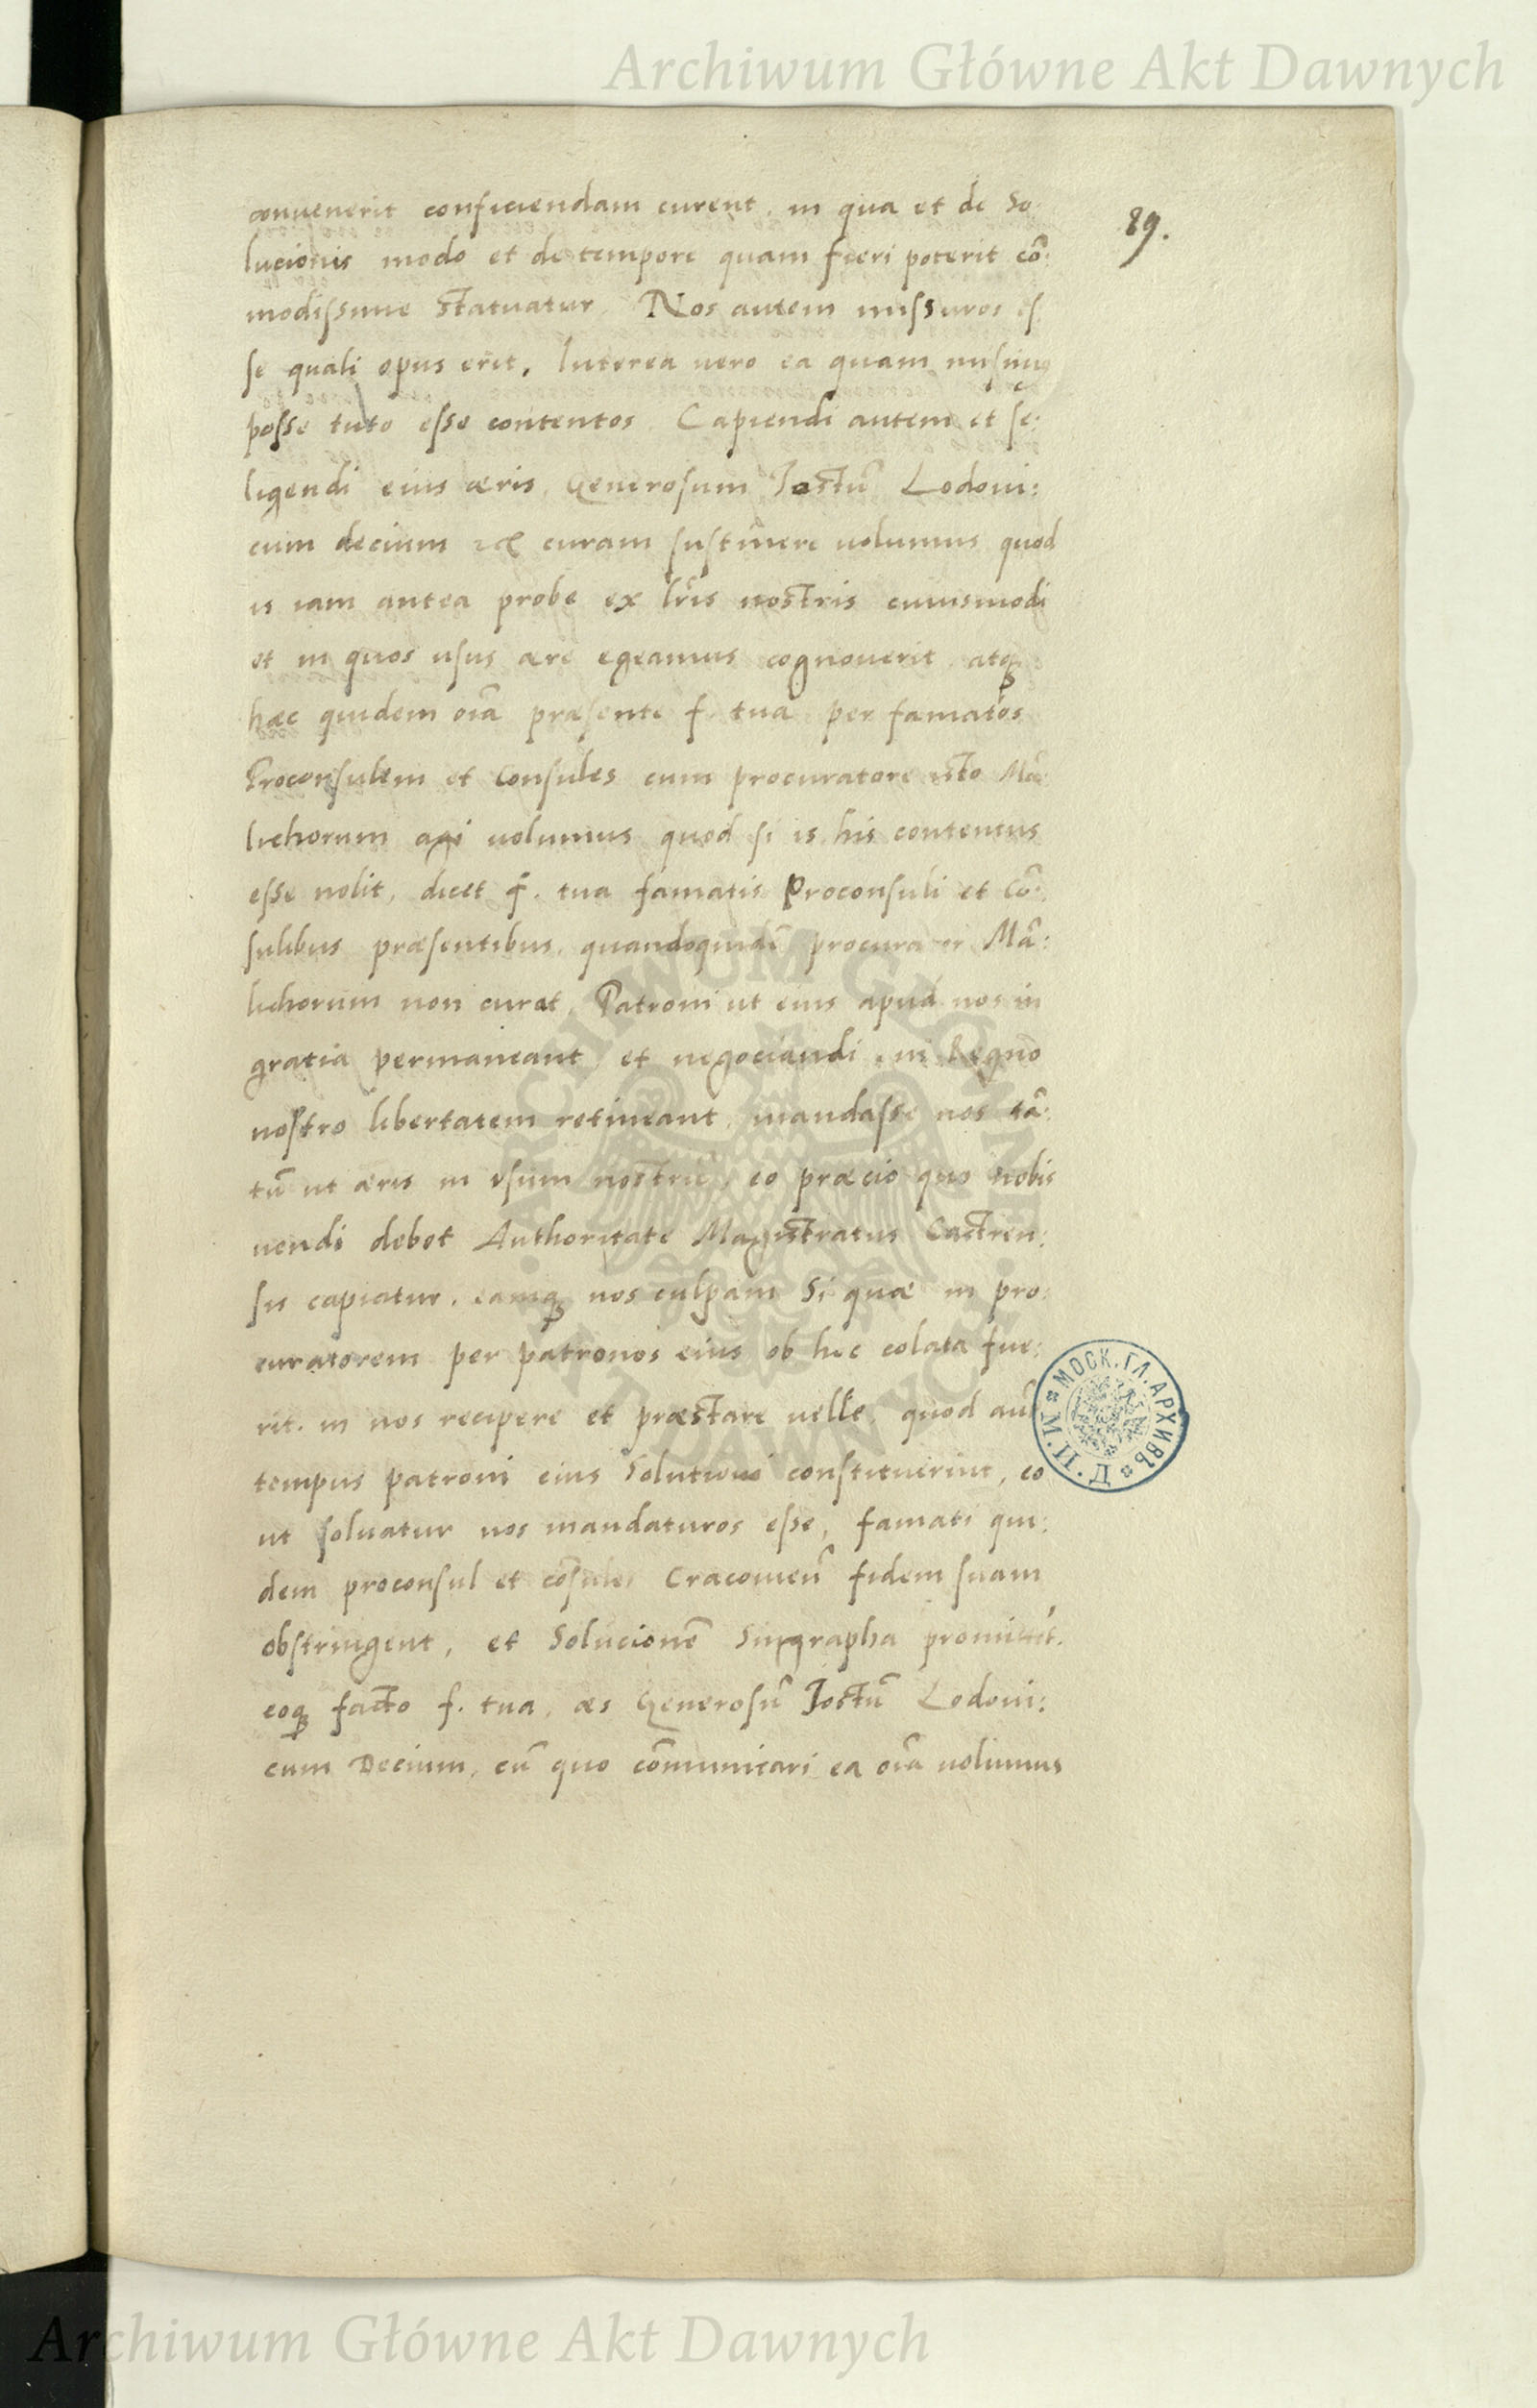 Archiwum Główne Akt Dawnych
89.
conuenerit conficiendam curent, in qua et de So:
lucionis modo et de tempore quam fieri poterit cō:
modissime statuatur. Nos autem missuros es
se quali opus erit. Interea uero ea quam misimus
posse tuto esse contentos. Capiendi autem et se:
ligendi eius æris, Generosum Jostū Lodoui:
cum decium curam sustinere uolumus quod
is iam antea probe ex lr̃is nostris cuiusmodi
et in quos usus ære egeamus cognouerit, atq;
hæc quidem oīa præsente f. tua per famatos
Proconsulem et Consules cum procuratore isto Mā
lichorum agi uolumus quod si is his contentus
esse nolit, dicet f. tua famatis Proconsuli et Cō:
sulibus præsentibus, quandoquidē procurator Mā:
lichorum non curat, Patroni ut eius apud nos in
gratia permaneant et negociandi in Regno
nostro libertatem retineant, mandasse nos tā:
tū ut æris in usum nostrū, eo præcio quo nobis
uendi debet Authoritate Magistratus Castren:
sis capiatur, eamq; nos culpam Si quæ in pro:
curatorem per patronos eius ob hoc colata fue:
rit. in nos recipere et præstare uelle, quod aūt
tempus patroni eius Solutioni constituerint, eo
ut soluatur nos mandaturos esse, famati qui:
dem proconsul et cōsules Cracouien̄ fidem suam
obstringent, et Solucionē Singrapha promittēt.
eoq; facto f. tua, æs Generosū Jostū Lodoui:
cum Decium, cū quo cōmunicari ea oīa uolumus
МОСК. ГЛ. АРХИВЪ * Д * М. И. Д.
ARCHIWUM GŁÓWNE AKT DAWNYCH
Archiwum Główne Akt Dawnych